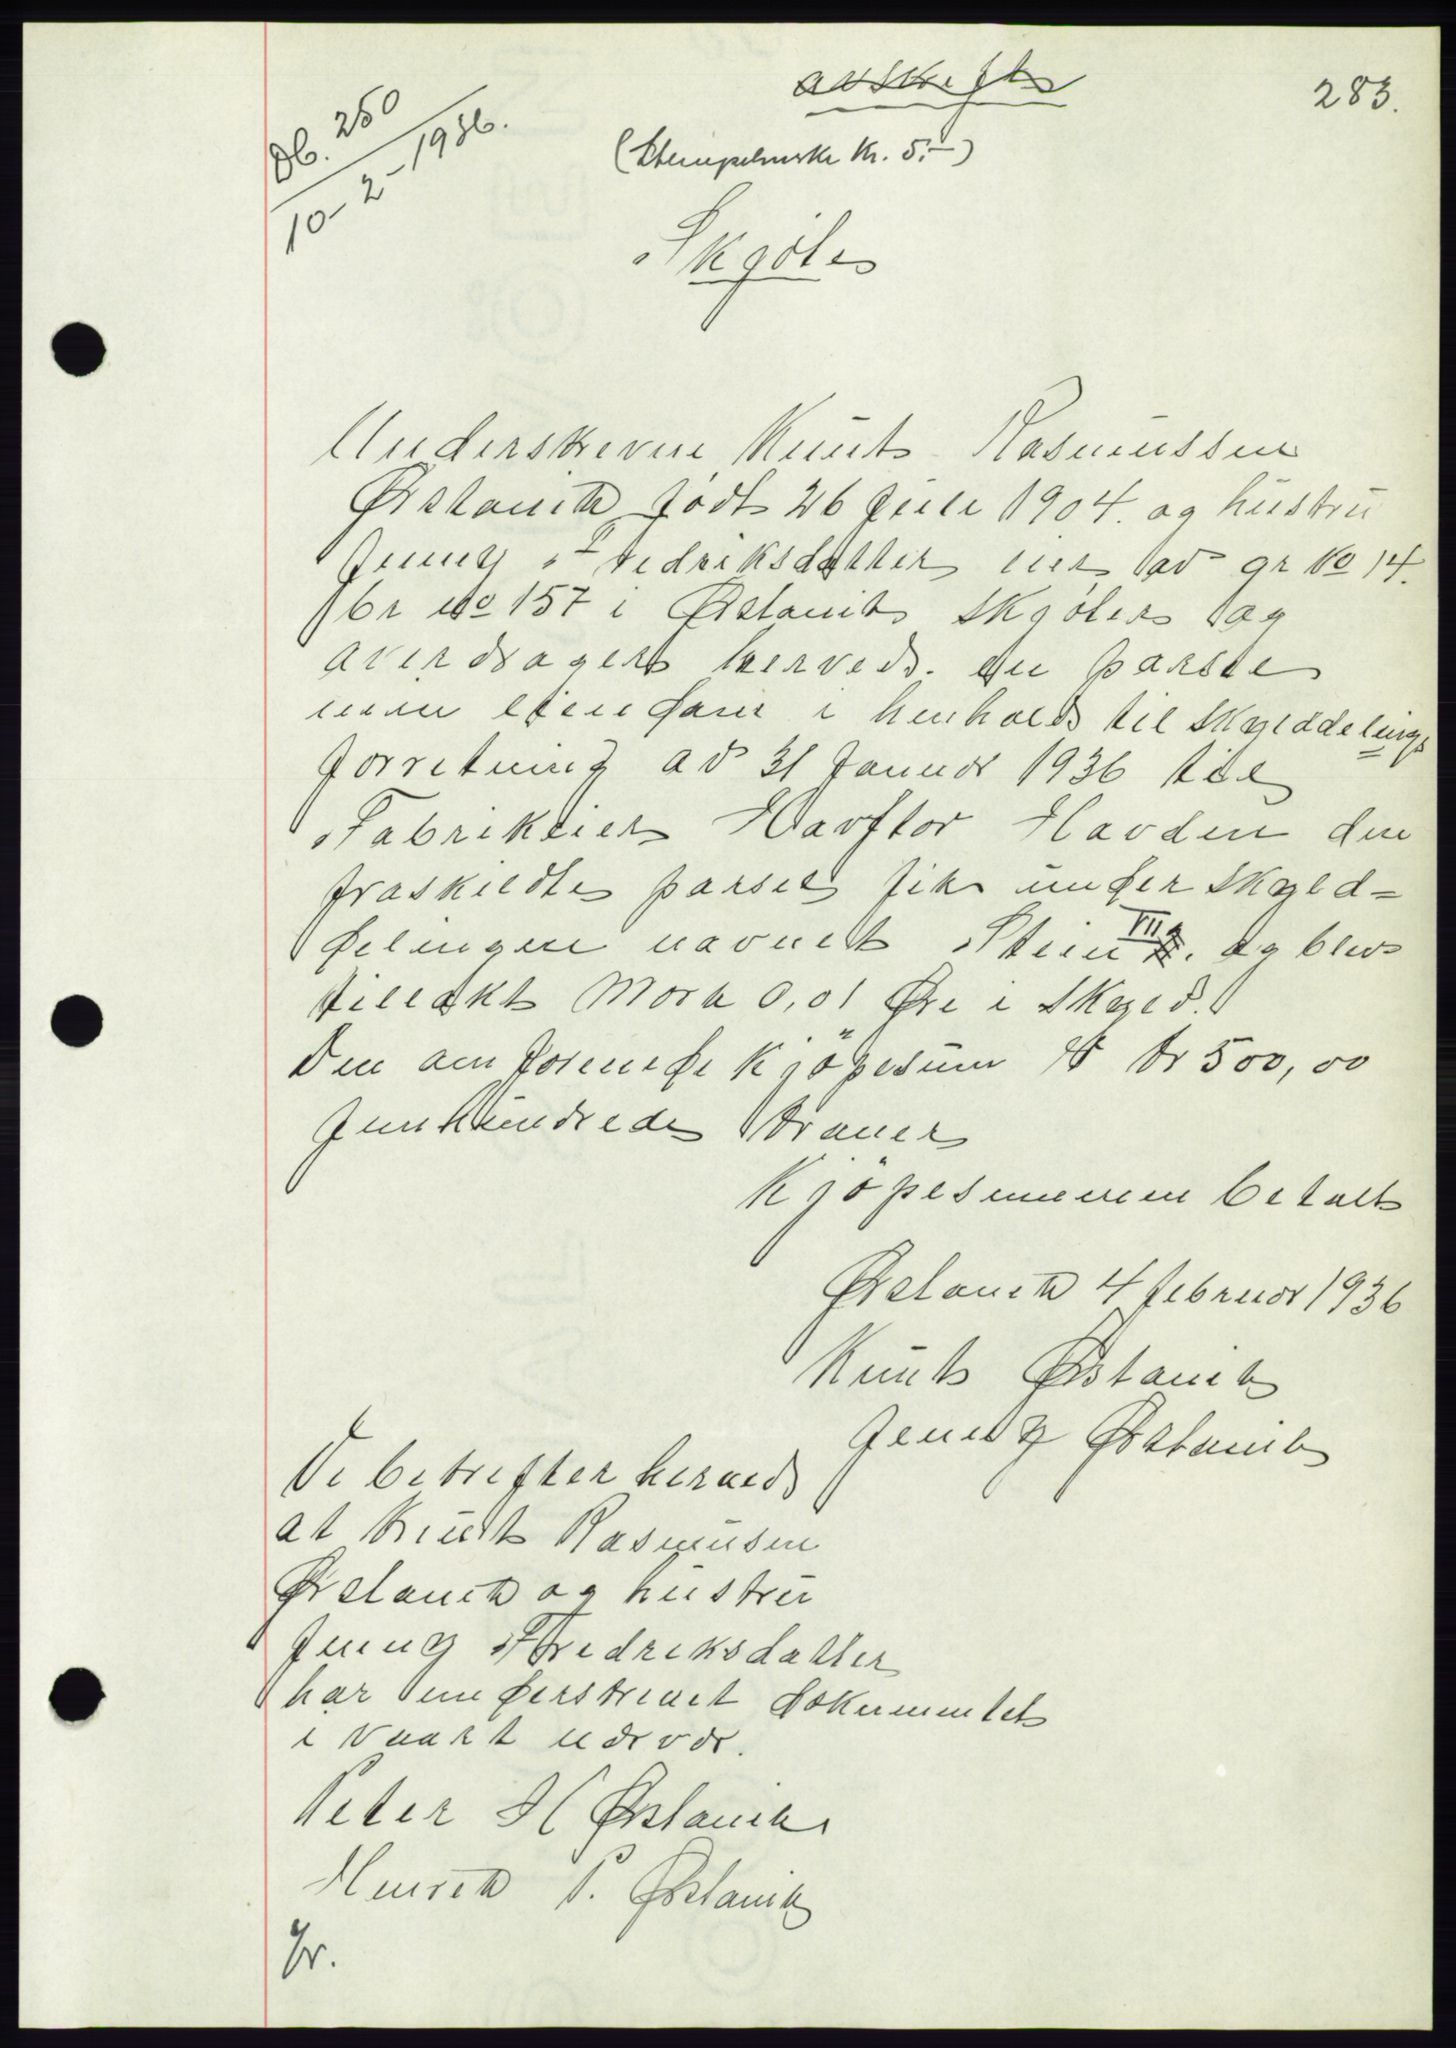 avskrift
283.
Db. 250
10-2-1936.
(Stempelmerke Kr. 5.-)
Skjøte
Underskrevne Knut Rasmussen
Ørstavik født 26 Juli 1904. og hustru
Jenny Fredriksdatter eier av gr No 14.
br no 157 i Ørstavik skjøter og
averdrager herved. en parsel
min eiendom i henhold til skylddelings
forretning av 31 Januar 1936 til
Fabrikeier Havftor Hovden den
fraskildte parsel fik under skyld=
delingen navnet Stein VII. og blev
tillakt Mark 0,01 Øre i skyld.
Den omforenede kjöpesum er kr 500,00
femhundrede kroner
Kjöpesummen betalt
Ørstavik 4 februar 1936
Knut Ørstavik
Jenny Ørstavik
Vi betrefter herved
at Knut Rasmusen
Ørstavik og hustru
Jenny Fredriksdatter
har underskrevet dokumentet
i vaart nærvær.
Peter H Ørstavik
Henrik P. Ørstavik